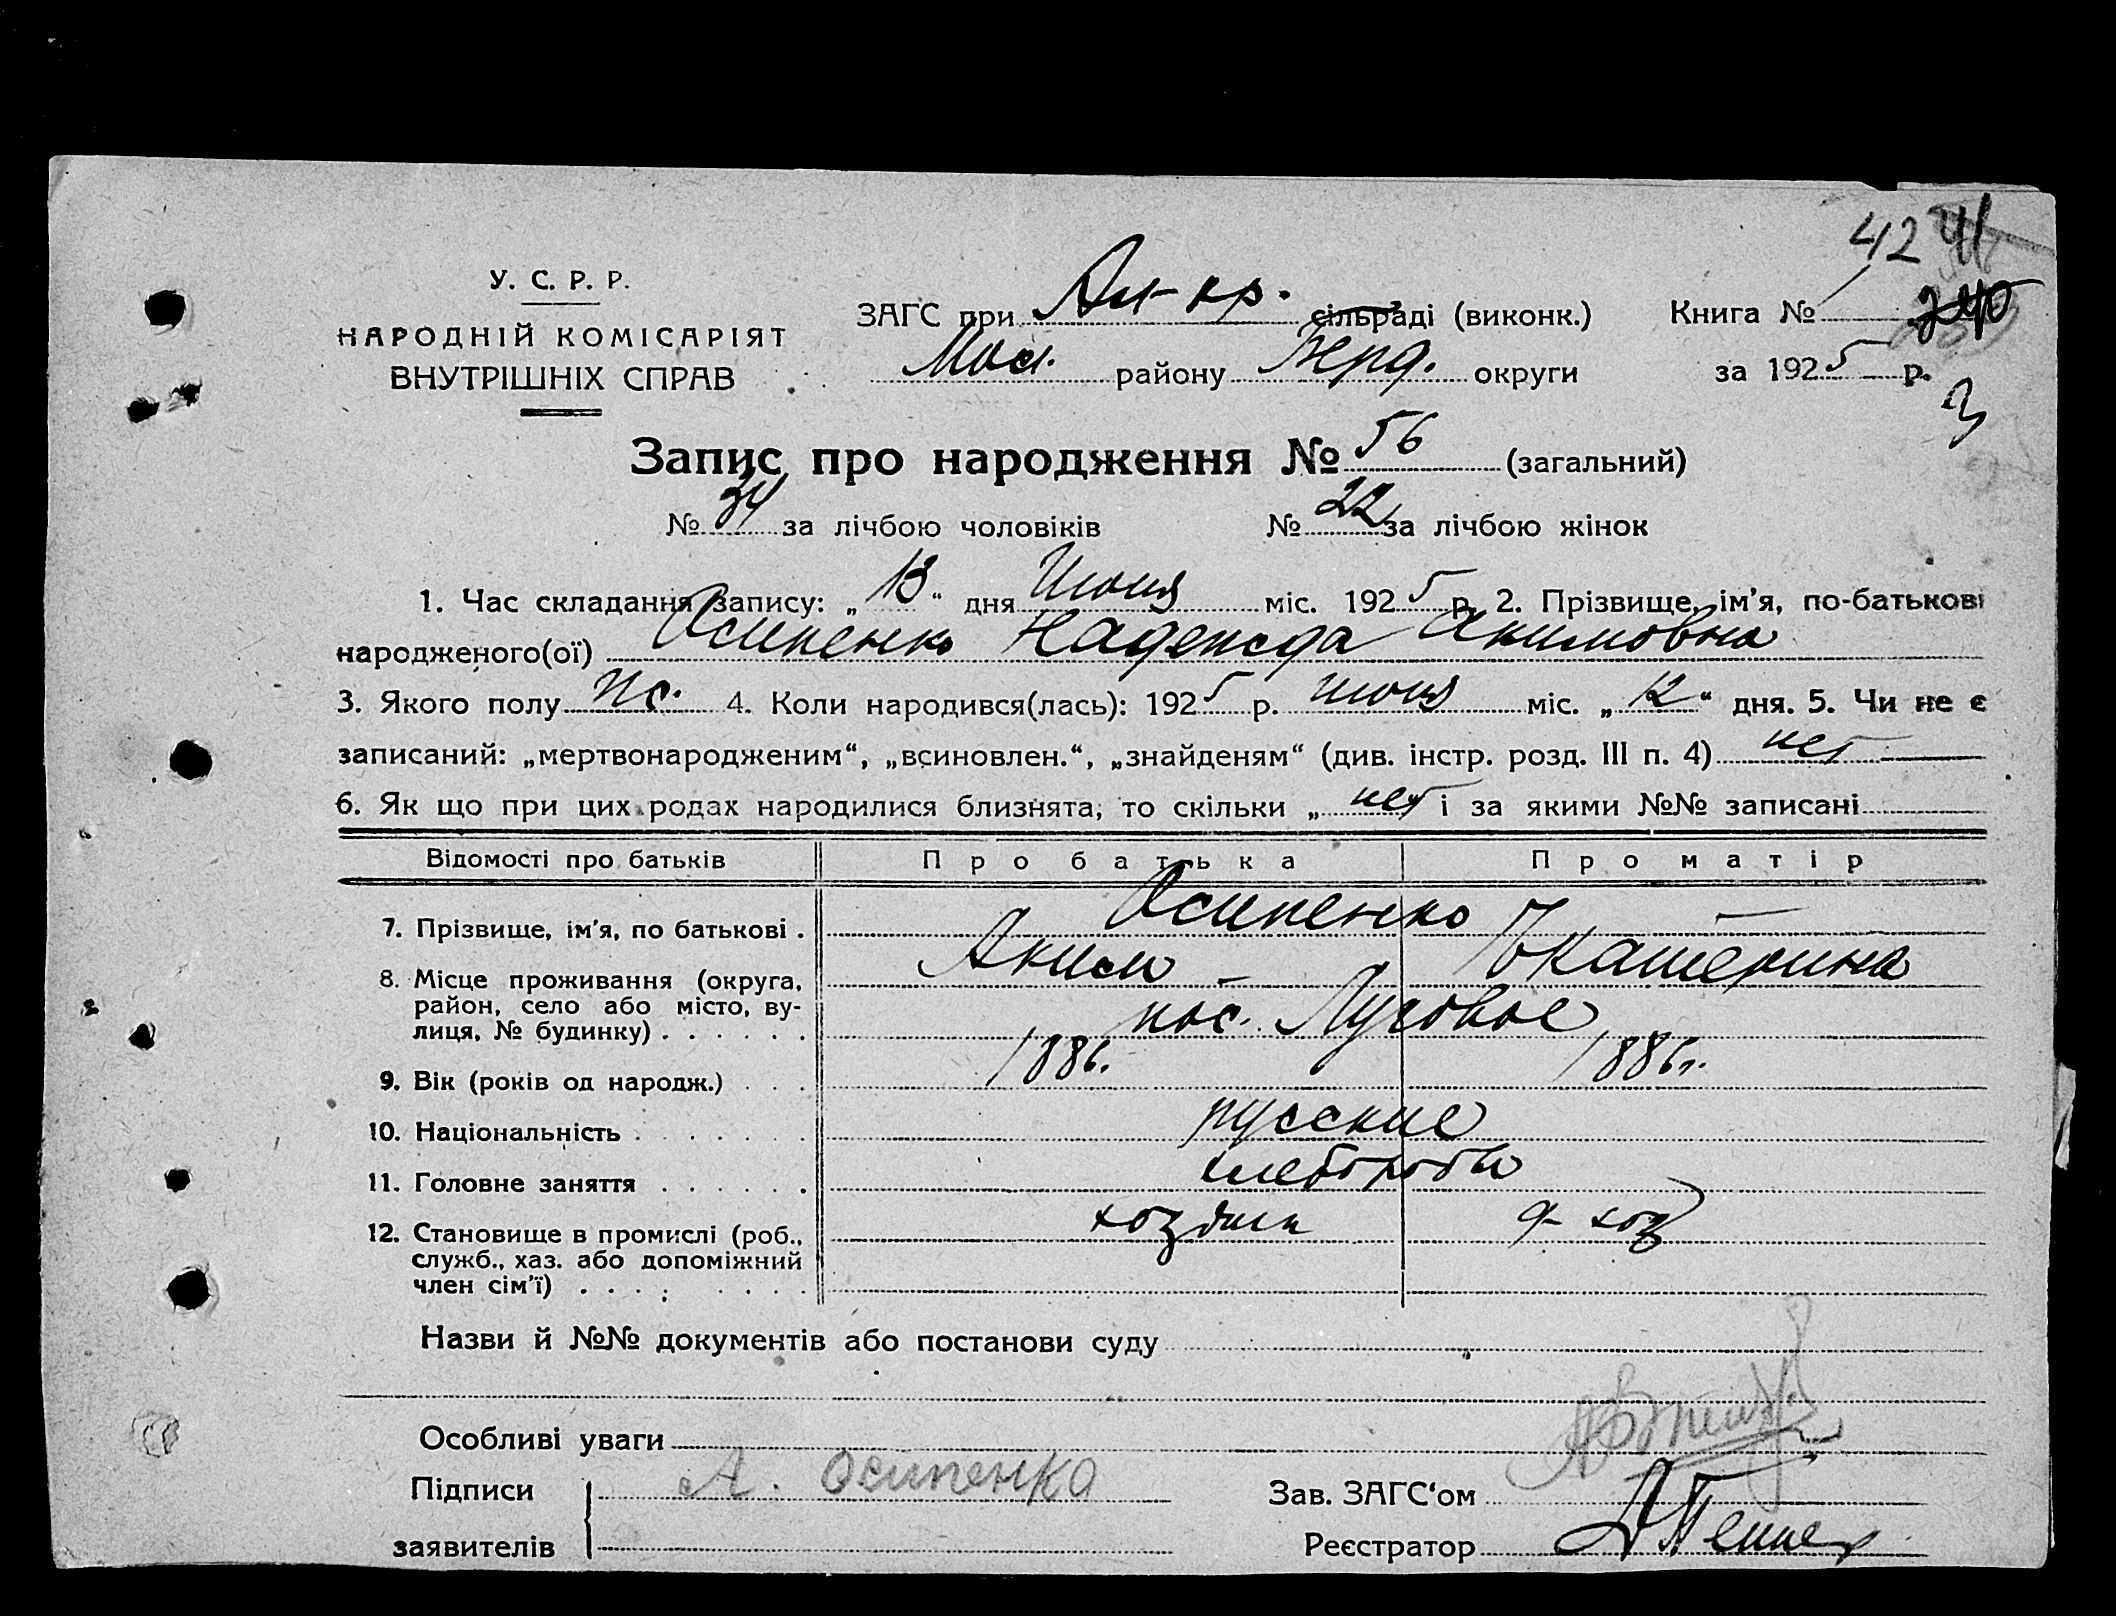 42 41
У. С. Р. Р.
НАРОДНІЙ КОМІСАРІЯТ
ВНУТРІШНІХ СПРАВ
ЗАГС при Ал-кр. сільраді (виконк.) Книга № 240
Мол. району Берд. округи за 1925 р.
3
Запис про народження № 56 (загальний)
№ 34 за лічбою чоловіків № 22 за лічбою жінок
1. Час складання запису: „13“ дня Июня міс. 1925 р. 2. Прізвище, ім’я, по-батькові
народженого(ої) Осипенко Надежда Акимовна
3. Якого полу ж. 4. Коли народився(лась): 1925 р. июня міс. „12“ дня. 5. Чи не є
записаний: „мертвонародженим“, „всиновлен.“, „знайденям“ (див. інстр. розд. III п. 4) нет
6. Як що при цих родах народилися близнята, то скільки „ нет і за якими №№ записані
Відомості про батьків Про батька Про матір
7. Прізвище, ім’я, по батькові . Осипенко —
Аким — Екатерина
8. Місце проживання (округа, район, село або місто, ву-
лиця, № будинку) . . . . . . пос. Луговое
9. Вік (років од народж.) . . . 1886. 1886г.
10. Національність . . . . . . русские
11. Головне заняття . . . . . . хлеборобы
12. Становище в промислі (роб., служб., хаз. або допоміжний
член сім’ї) . . . . . . . . хозяин д-хоз
Назви й №№ документів або постанови суду
Особливі уваги
Підписи А. Осипенко Зав. ЗАГС‘ом
заявителів Реєстратор